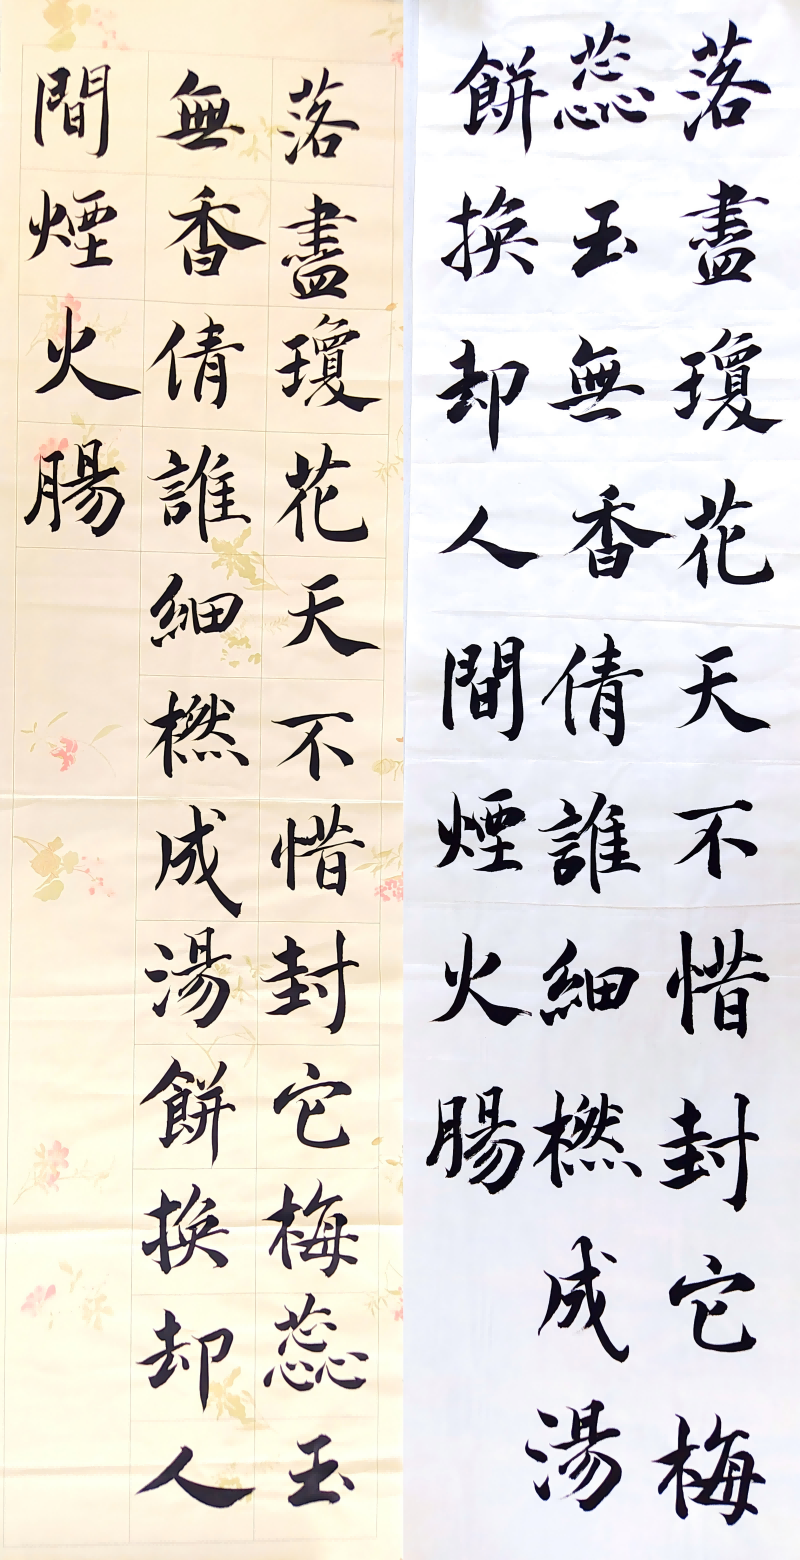 落盡瓊花天不惜封它梅
蕊玉無香倩誰細橪成湯
餅換却人間煙火腸
落盡瓊花天不惜封它梅蕊玉
無香倩誰細橪成湯餅換却人
間煙火腸